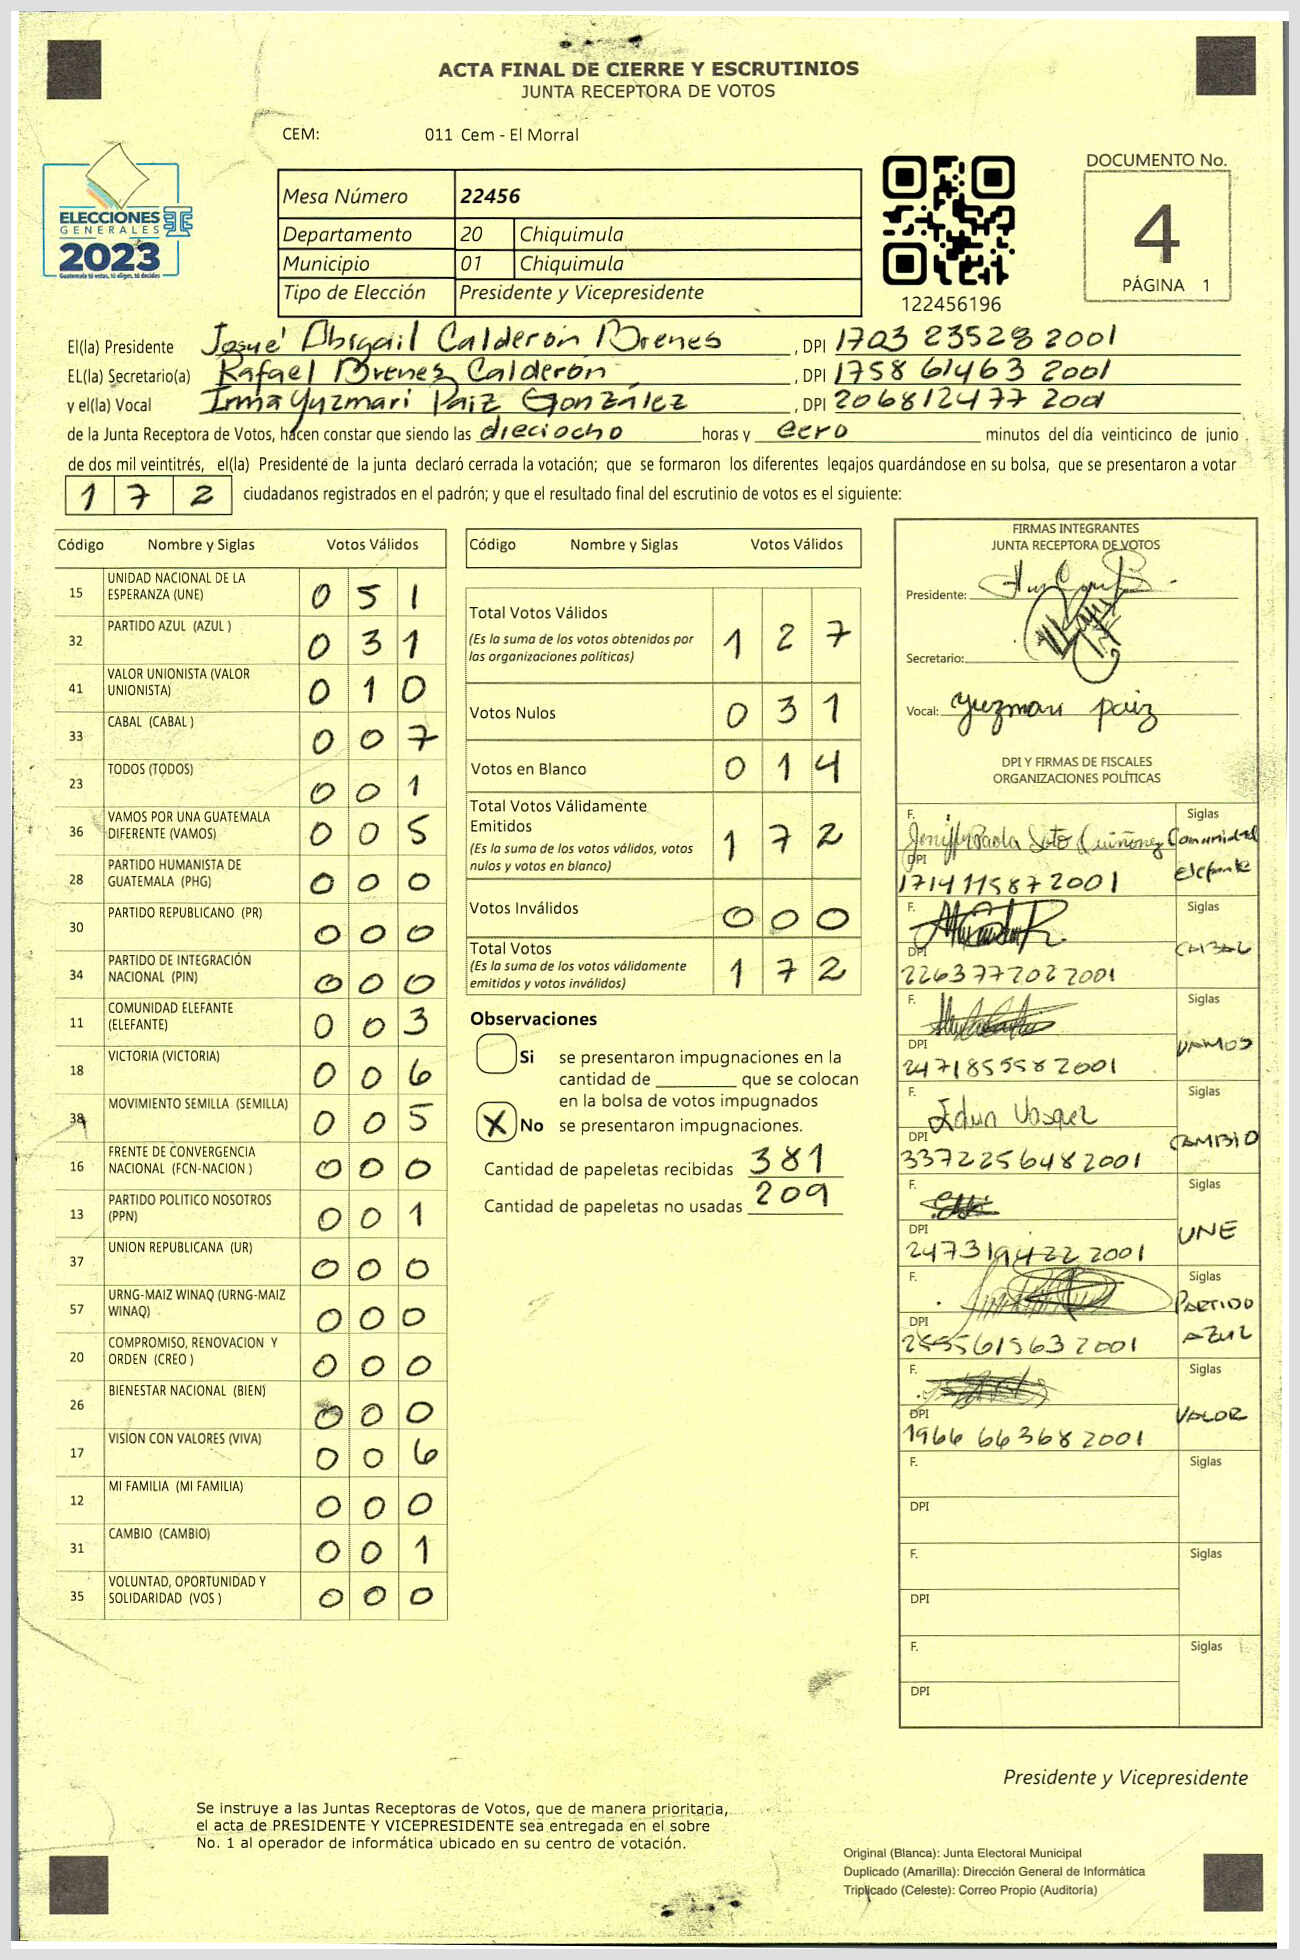 ACTA FINAL DE CIERRE Y ESCRUTINIOS
JUNTA RECEPTORA DE VOTOS
CEM: 011 Cem - El Morral
ELECCIONES
GENERALES
2023
Guatemala tú votas, tú eliges, tú decides
Mesa Número 22456
Departamento 20 Chiquimula
Municipio 01 Chiquimula
Tipo de Elección Presidente y Vicepresidente
122456196
DOCUMENTO No.
4
PÁGINA 1
El(la) Presidente Josué Abigail Calderón Brenes, DPI 1703 23528 2001
EL(la) Secretario(a) Rafael Brenes Calderón, DPI 1758 61463 2001
y el(la) Vocal Irma Yuzmari Paiz González, DPI 2068 12477 2001
de la Junta Receptora de Votos, hacen constar que siendo las dieciocho horas y cero minutos del día veinticinco de junio
de dos mil veintitrés, el(la) Presidente de la junta declaró cerrada la votación; que se formaron los diferentes legajos guardándose en su bolsa, que se presentaron a votar
172 ciudadanos registrados en el padrón; y que el resultado final del escrutinio de votos es el siguiente:
Código Nombre y Siglas Votos Válidos
15 UNIDAD NACIONAL DE LA ESPERANZA (UNE) 0 5 1
32 PARTIDO AZUL (AZUL ) 0 3 1
41 VALOR UNIONISTA (VALOR UNIONISTA) 0 1 0
33 CABAL (CABAL ) 0 0 7
23 TODOS (TODOS) 0 0 1
36 VAMOS POR UNA GUATEMALA DIFERENTE (VAMOS) 0 0 5
28 PARTIDO HUMANISTA DE GUATEMALA (PHG) 0 0 0
30 PARTIDO REPUBLICANO (PR) 0 0 0
34 PARTIDO DE INTEGRACIÓN NACIONAL (PIN) 0 0 0
11 COMUNIDAD ELEFANTE (ELEFANTE) 0 0 3
18 VICTORIA (VICTORIA) 0 0 6
38 MOVIMIENTO SEMILLA (SEMILLA) 0 0 5
16 FRENTE DE CONVERGENCIA NACIONAL (FCN-NACION ) 0 0 0
13 PARTIDO POLITICO NOSOTROS (PPN) 0 0 1
37 UNION REPUBLICANA (UR) 0 0 0
57 URNG-MAIZ WINAQ (URNG-MAIZ WINAQ) 0 0 0
20 COMPROMISO, RENOVACION Y ORDEN (CREO ) 0 0 0
26 BIENESTAR NACIONAL (BIEN) 0 0 0
17 VISION CON VALORES (VIVA) 0 0 6
12 MI FAMILIA (MI FAMILIA) 0 0 0
31 CAMBIO (CAMBIO) 0 0 1
35 VOLUNTAD, OPORTUNIDAD Y SOLIDARIDAD (VOS ) 0 0 0
Código Nombre y Siglas Votos Válidos
Total Votos Válidos 1 2 7
(Es la suma de los votos obtenidos por
las organizaciones políticas)
Votos Nulos 0 3 1
Votos en Blanco 0 1 4
Total Votos Válidamente
Emitidos 1 7 2
(Es la suma de los votos válidos, votos
nulos y votos en blanco)
Votos Inválidos 0 0 0
Total Votos 1 7 2
(Es la suma de los votos válidamente
emitidos y votos inválidos)
Observaciones
Si se presentaron impugnaciones en la
cantidad de ________ que se colocan
en la bolsa de votos impugnados
X No se presentaron impugnaciones.
Cantidad de papeletas recibidas 381
Cantidad de papeletas no usadas 209
FIRMAS INTEGRANTES
JUNTA RECEPTORA DE VOTOS
Presidente:
Secretario:
Vocal: Yuzmari Paiz
DPI Y FIRMAS DE FISCALES
ORGANIZACIONES POLÍTICAS
F. Paola Soto Quiñonez Siglas Comunidad
DPI Elefante
1714 11587 2001
F. Siglas
DPI CABAL
2263 77202 2001
F. Siglas
DPI VAMOS
2471 85558 2001
F. Edwin Vasquez Siglas
DPI CAMBIO
3372 25648 2001
F. Siglas
DPI UNE
2473 19422 2001
F. Siglas
PARTIDO
DPI AZUL
61563 2001
F. Siglas
DPI VALOR
1966 66368 2001
F. Siglas
DPI
F. Siglas
DPI
F. Siglas
DPI
Presidente y Vicepresidente
Se instruye a las Juntas Receptoras de Votos, que de manera prioritaria,
el acta de PRESIDENTE Y VICEPRESIDENTE sea entregada en el sobre
No. 1 al operador de informática ubicado en su centro de votación.
Original (Blanca): Junta Electoral Municipal
Duplicado (Amarilla): Dirección General de Informática
Triplicado (Celeste): Correo Propio (Auditoría)